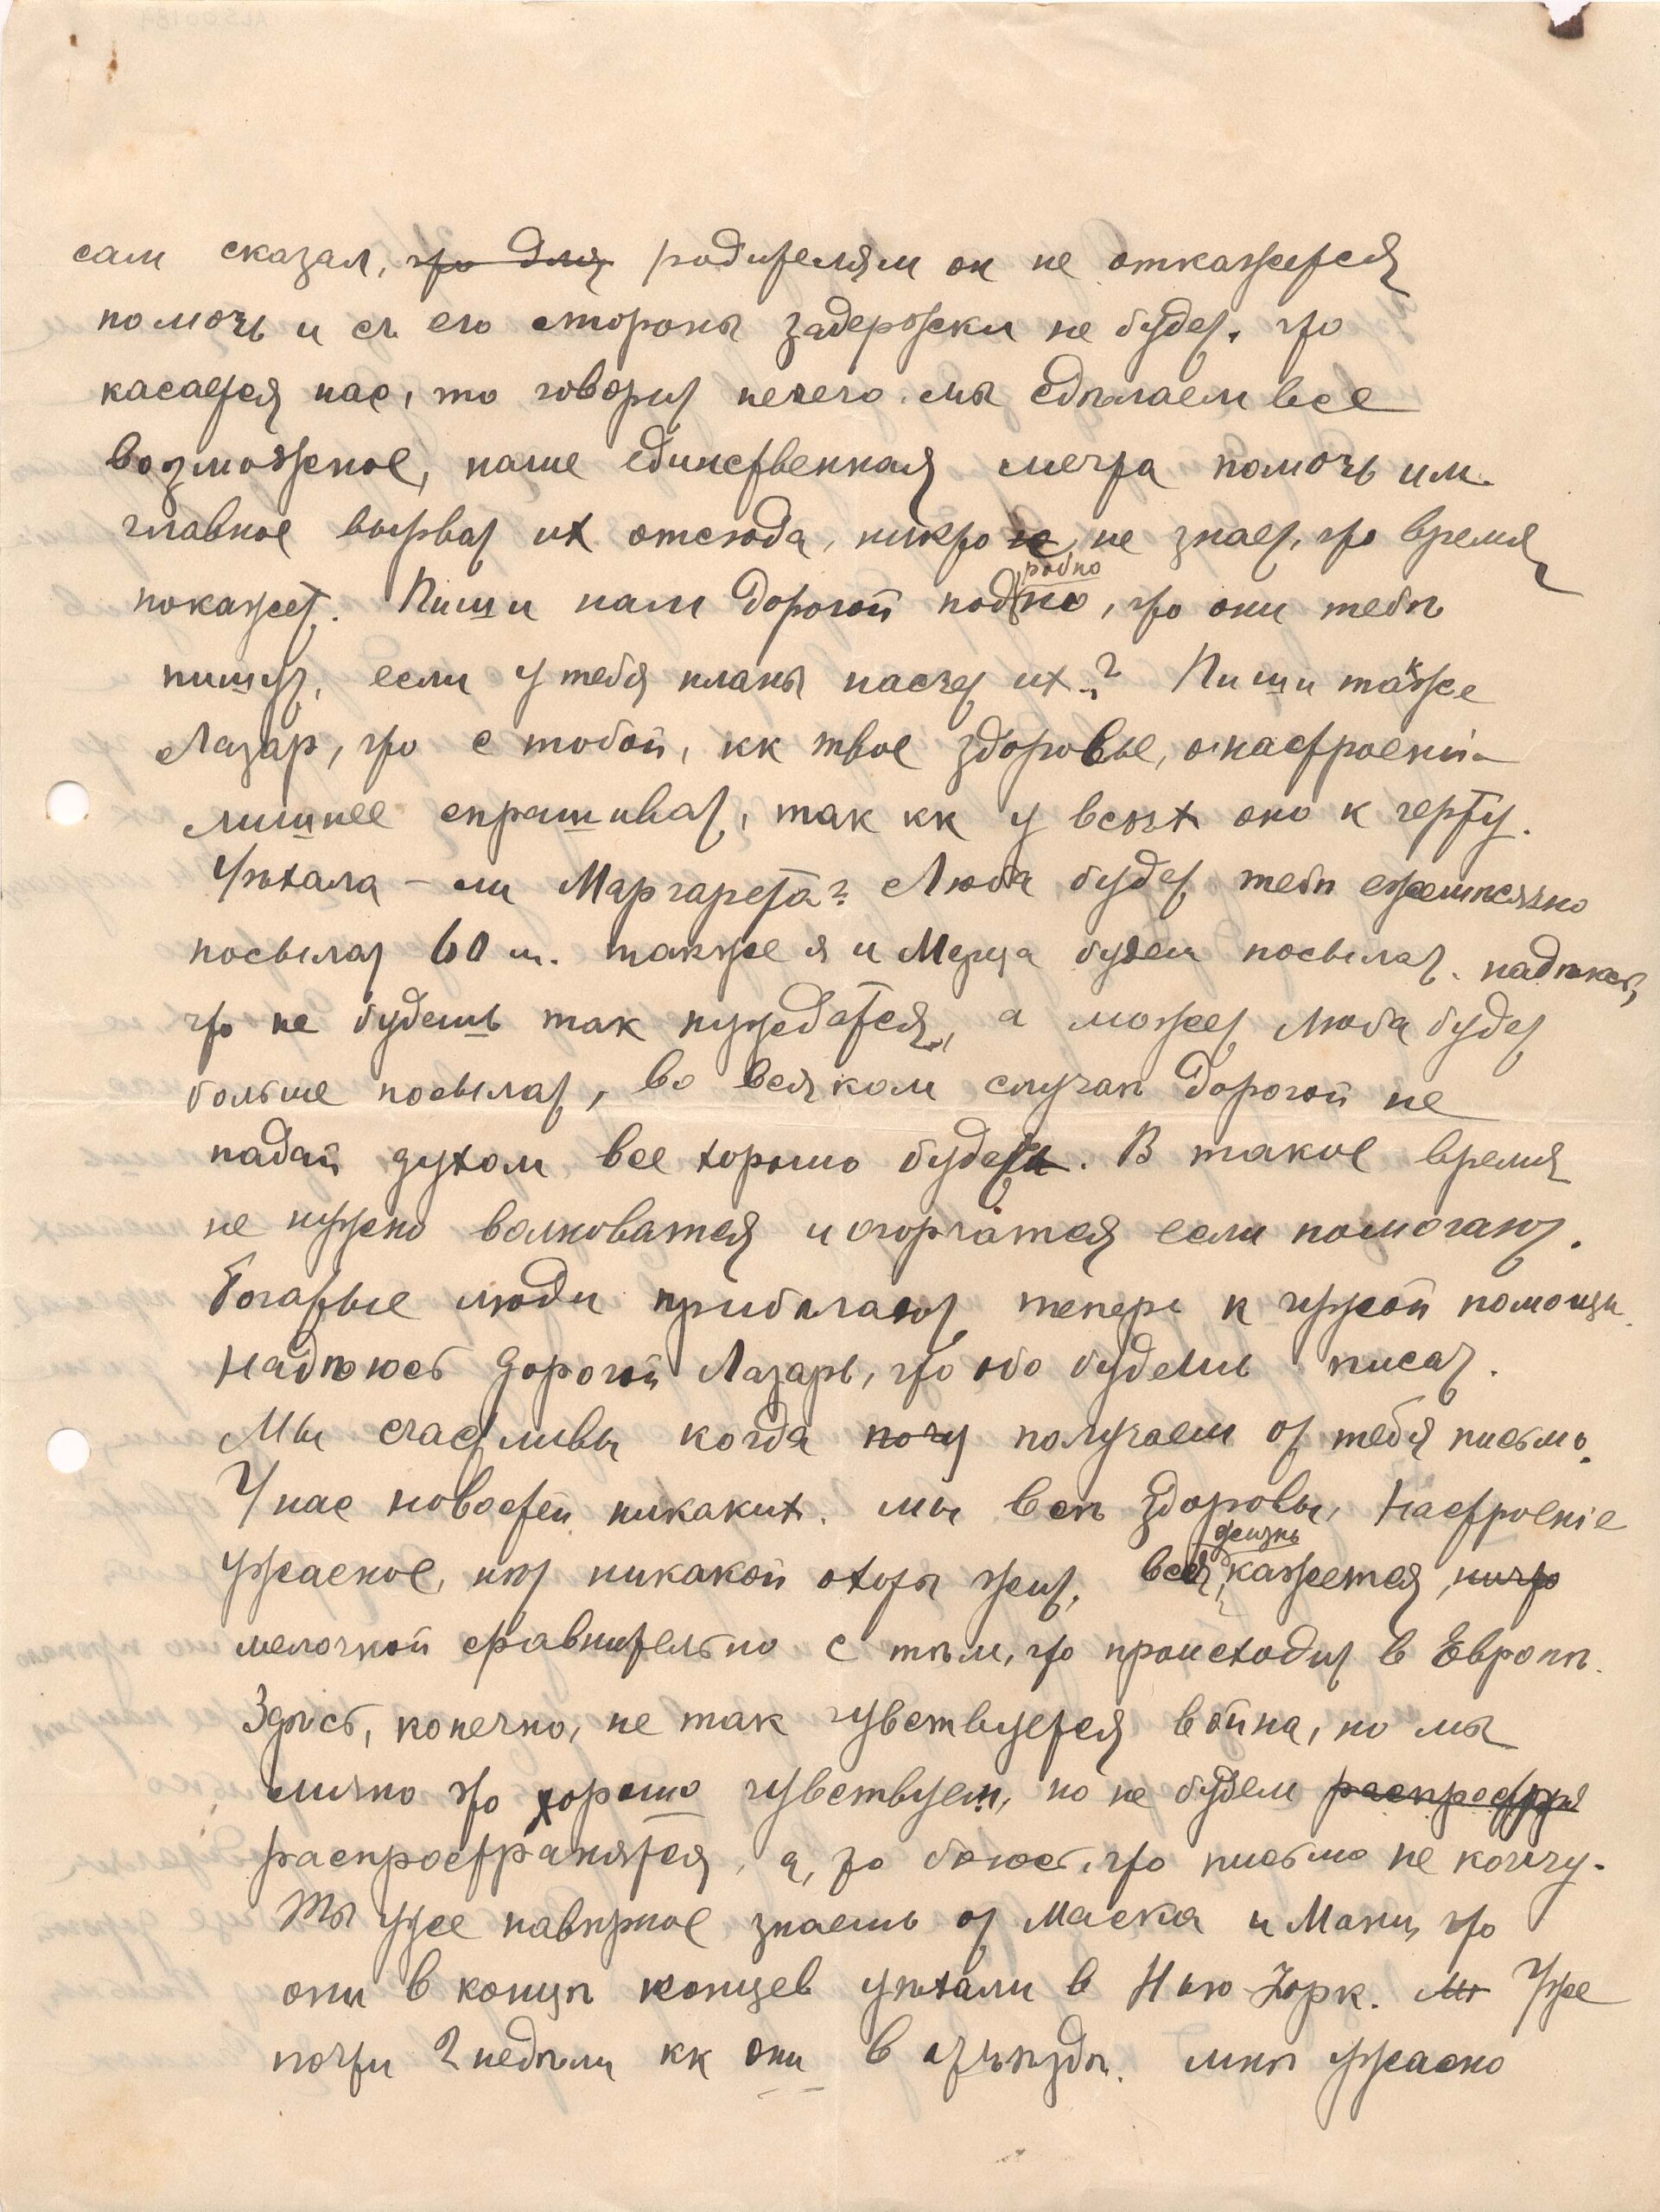 сам сказал, что для родителям он не откажется
помочь и съ его стороны задержки не будет. что
касается нас, то говорит нечего. мы сдѣлаем все
возможное, наше единственная мечта помочь им.
главное вырват их отсюда, никто не знает, что время
покажет. Пиши нам дорогой подробно, что они тебѣ
пишут, если у тебя планы насчет их? Пиши также
Лазар, что с тобой, кк твое здоровье, о настроенiи
лишнее спрашиват, так кк у всѣх оно к черту.
Уѣхала – ли Маргарета? Люба будет тебѣ ежемѣсячно
посылат 60 м. также я и Меруа будем посылат. надѣюсь,
что не будешь так нуждатся, а может Люба будет
больше посылат, во всяком случаѣ дорогой не
падай духом все хорошо будет. В такое время
не нужно волноватся и огорчатся если помогают.
Богатые люди прибѣгают теперь к чужой помощи.
Надѣюсь дорогой Лазарь, что обо будешь писат.
Мы счастливы когда почу получаем от тебя письмо.
У нас новостей никаких. мы всѣ здоровы, Настроенiе
ужасное, нѣт никакой охоты жит, вся жизнь кажется, ничто
мелочной сравнительно с тѣм, что происходит в Европѣ.
Здѣсь, конечно, не так чувствуется война, но мы
лично это хорошо чувствуем, но не будем распростря
распространятся, а, то боюсь, что письмо не кончу.
Ты уже навѣрное знаешь от Маска и Мани, что
они в концѣ концев уѣхали в Нью-Йорк. Мы Уже
почти 2 недѣли кк они в отъѣздѣ. мнѣ ужасно